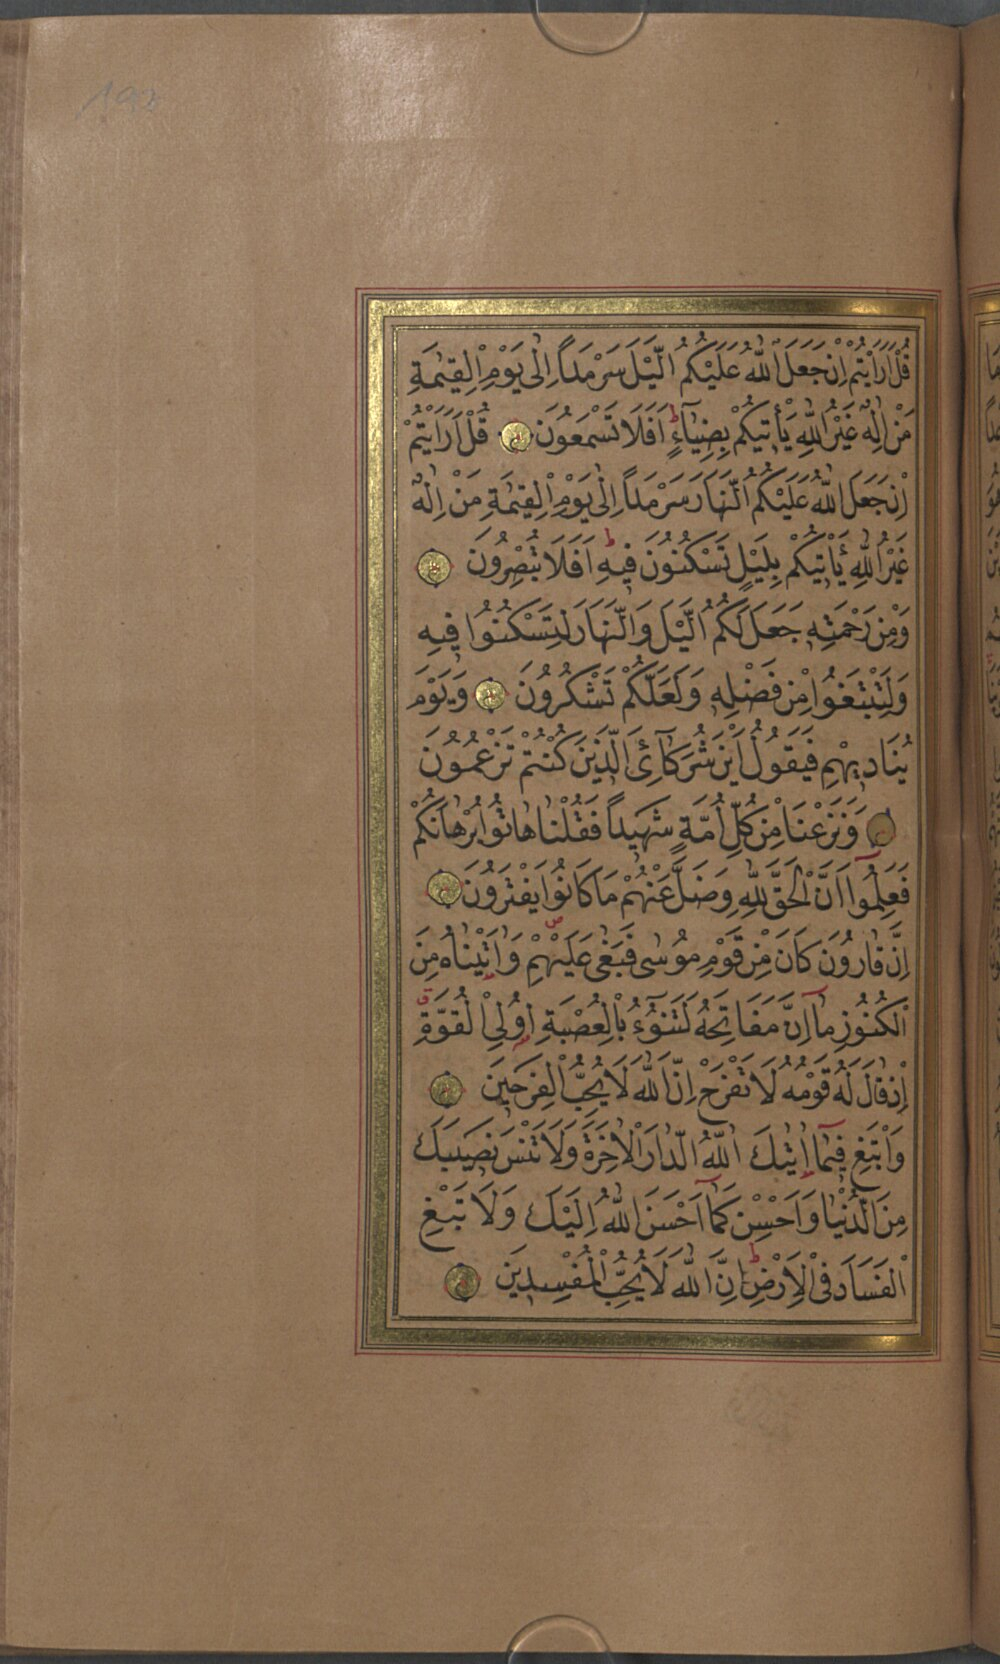 قُلْ اَرَاَيْتُمْ اِنْ جَعَلَ اللّٰهُ عَلَيْكُمُ الَّيْلَ سَرْمَدًا اِلٰى يَوْمِ الْقِيٰمَةِ
مَنْ اِلٰهٌ غَيْرُ اللّٰهِ يَأْتِيكُمْ بِضِيَاۤءٍ ط اَفَلَا تَسْمَعُونَ قُلْ اَرَاَيْتُمْ
اِنْ جَعَلَ اللّٰهُ عَلَيْكُمُ النَّهَارَ سَرْمَدًا اِلٰى يَوْمِ الْقِيٰمَةِ مَنْ اِلٰهٌ
غَيْرُ اللّٰهِ يَأْتِيكُمْ بِلَيْلٍ تَسْكُنُونَ فِيهِ ط اَفَلَا تُبْصِرُونَ
وَمِنْ رَحْمَتِهٖ جَعَلَ لَكُمُ الَّيْلَ وَالنَّهَارَ لِتَسْكُنُوا فِيهِ
وَلِتَبْتَغُوا مِنْ فَضْلِهٖ وَلَعَلَّكُمْ تَشْكُرُونَ وَيَوْمَ
يُنَادِيهِمْ فَيَقُولُ اَيْنَ شُرَكَاۤئِىَ الَّذِينَ كُنْتُمْ تَزْعُمُونَ
وَنَزَعْنَا مِنْ كُلِّ اُمَّةٍ شَهِيدًا فَقُلْنَا هَاتُوا بُرْهَانَكُمْ
فَعَلِمُوۤا اَنَّ الْحَقَّ لِلّٰهِ وَضَلَّ عَنْهُمْ مَا كَانُوا يَفْتَرُونَ
اِنَّ قَارُونَ كَانَ مِنْ قَوْمِ مُوسٰى فَبَغٰى عَلَيْهِمْ ص وَاٰتَيْنَاهُ مِنَ
الْكُنُوزِ مَاۤ اِنَّ مَفَاتِحَهُ لَتَنُوۤءُ بِالْعُصْبَةِ اُولِى الْقُوَّةِ ق
اِذْ قَالَ لَهُ قَوْمُهُ لَا تَفْرَحْ اِنَّ اللّٰهَ لَا يُحِبُّ الْفَرِحِينَ
وَابْتَغِ فِيمَاۤ اٰتٰيكَ اللّٰهُ الدَّارَ الْاٰخِرَةَ وَلَا تَنْسَ نَصِيبَكَ
مِنَ الدُّنْيَا وَاَحْسِنْ كَمَاۤ اَحْسَنَ اللّٰهُ اِلَيْكَ وَلَا تَبْغِ
الْفَسَادَ فِى الْاَرْضِ ط اِنَّ اللّٰهَ لَا يُحِبُّ الْمُفْسِدِينَ